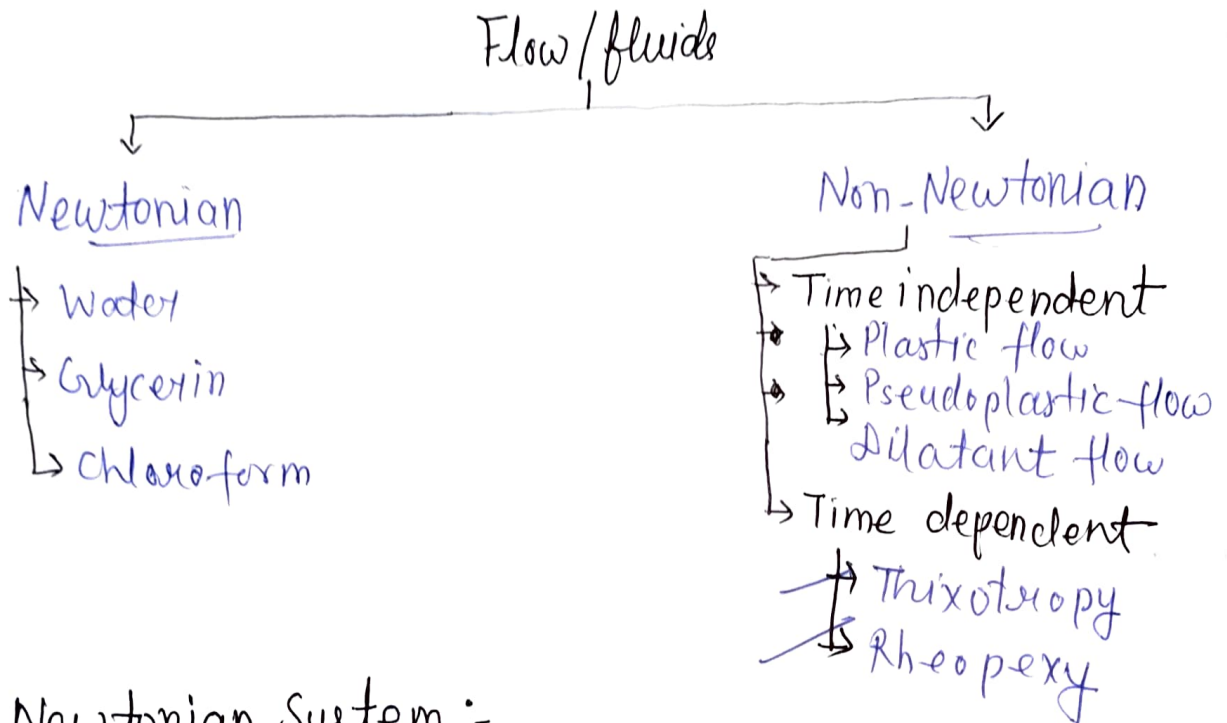 Flow/fluids
Newtonian
Water
Glycerin
Chloroform
Non-Newtonian
Time independent
Plastic flow
Pseudoplastic flow
Dilatant flow
Time dependent
Thixotropy
Rheopexy
Newtonian System:-